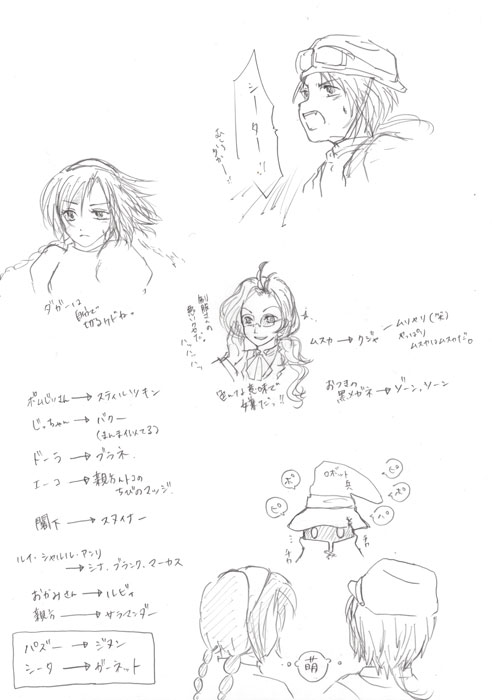 シーター!!
ダガーは
自分で
切るケドね。
ムスカ→クジャ
ムリヤリ(笑)
やっぱり
ムスカはムスカだ。
色んな意味で
おつきの
黒メガネ→ゾーン、ソーン
ボムじいさん→スティルツキン
じっちゃん→バクー
(まんまイメてる)
ドーラ→ブラネ
エーコ→
ちびのマッジ
閣下→スタイナー
ルイ・シャルル・アンリ
→シナ、ブランク、マーカス
おかみさん→ルビィ
親方→サラマンダー
パズー→ジタン
シータ→ガーネット
ロボット
兵
ピ
ポ
ピ
ポ
ピ
萌